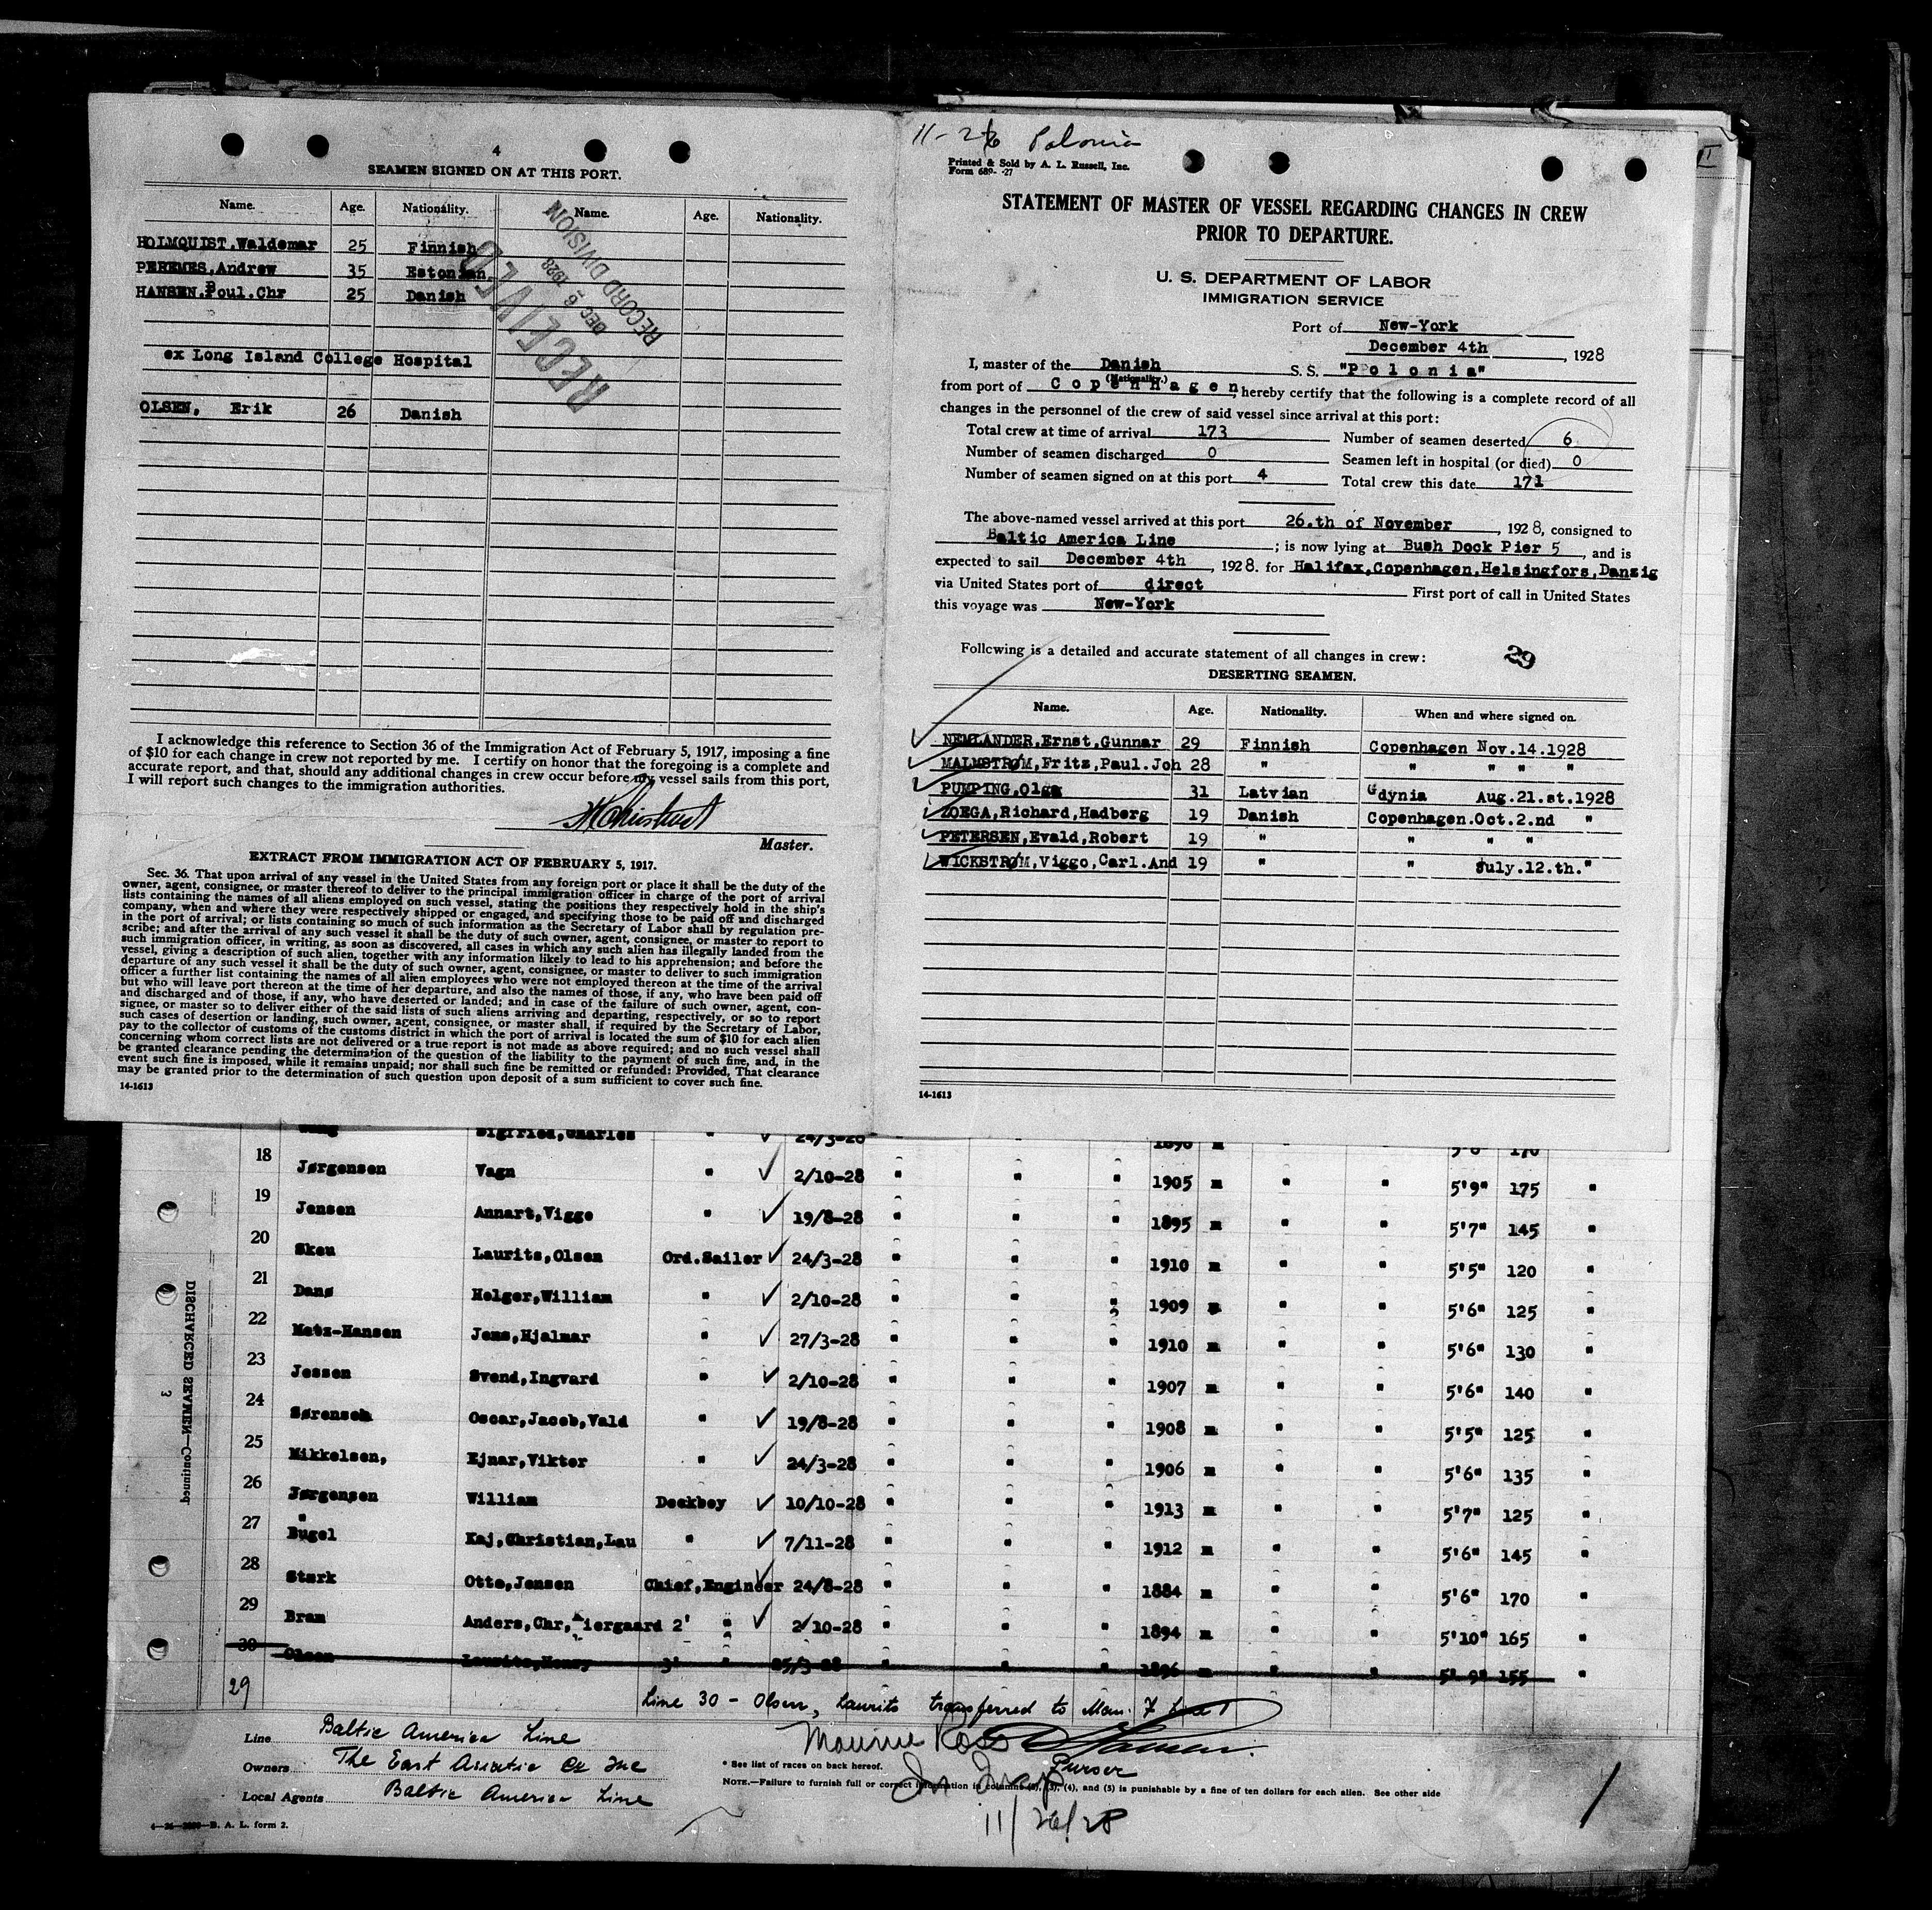 4
SEAMEN SIGNED ON AT THIS PORT.
Name. Age. Nationality. Name. Age. Nationality.
HOLMQUIST.Waldemar 25 Finnish
PEREMES,Andrew 35 Estonian
HANSEN.Poul.Chr 25 Danish
ex Long Island College Hospital
OLSEN, Erik 26 Danish
RECEIVED
DEC 6 1928
RECORD DIVISION
I acknowledge this reference to Section 36 of the Immigration Act of February 5, 1917, imposing a fine
of $10 for each change in crew not reported by me. I certify on honor that the foregoing is a complete and
accurate report, and that, should any additional changes in crew occur before my vessel sails from this port,
I will report such changes to the immigration authorities.
Master.
EXTRACT FROM IMMIGRATION ACT OF FEBRUARY 5, 1917.
Sec. 36. That upon arrival of any vessel in the United States from any foreign port or place it shall be the duty of the
owner, agent, consignee, or master thereof to deliver to the principal immigration officer in charge of the port of arrival
lists containing the names of all aliens employed on such vessel, stating the positions they respectively hold in the ship's
company, when and where they were respectively shipped or engaged, and specifying those to be paid off and discharged
in the port of arrival; or lists containing so much of such information as the Secretary of Labor shall by regulation pre-
scribe; and after the arrival of any such vessel it shall be the duty of such owner, agent, consignee, or master to report to
such immigration officer, in writing, as soon as discovered, all cases in which any such alien has illegally landed from the
vessel, giving a description of such alien, together with any information likely to lead to his apprehension; and before the
departure of any such vessel it shall be the duty of such owner, agent, consignee, or master to deliver to such immigration
officer a further list containing the names of all alien employees who were not employed thereon at the time of the arrival
but who will leave port thereon at the time of her departure, and also the names of those, if any, who have been paid off
and discharged and of those, if any, who have deserted or landed; and in case of the failure of such owner, agent, con-
signee, or master so to deliver either of the said lists of such aliens arriving and departing, respectively, or so to report
such cases of desertion or landing, such owner, agent, consignee, or master shall, if required by the Secretary of Labor,
pay to the collector of customs of the customs district in which the port of arrival is located the sum of $10 for each alien
concerning whom correct lists are not delivered or a true report is not made as above required; and no such vessel shall
be granted clearance pending the determination of the question of the liability to the payment of such fine, and, in the
event such fine is imposed, while it remains unpaid; nor shall such fine be remitted or refunded: Provided, That clearance
may be granted prior to the determination of such question upon deposit of a sum sufficient to cover such fine.
14-1613
11-26 Polonia
Printed & Sold by A. L. Russell, Inc.
Form 689- -27
STATEMENT OF MASTER OF VESSEL REGARDING CHANGES IN CREW
PRIOR TO DEPARTURE.
U. S. DEPARTMENT OF LABOR
IMMIGRATION SERVICE
Port of New-York
December 4th, 1928
I, master of the Danish S. S. "Polonia"
(Nationality.)
from port of Copenhagen, hereby certify that the following is a complete record of all
changes in the personnel of the crew of said vessel since arrival at this port:
Total crew at time of arrival 173 Number of seamen deserted 6
Number of seamen discharged 0 Seamen left in hospital (or died) 0
Number of seamen signed on at this port 4 Total crew this date 171
The above-named vessel arrived at this port 26.th of November, 1928, consigned to
Baltic America Line; is now lying at Bush Dock Pier 5, and is
expected to sail December 4th, 1928. for Halifax,Copenhagen,Helsingfors,Danzig
via United States port of direct First port of call in United States
this voyage was New-York
Following is a detailed and accurate statement of all changes in crew: 29
DESERTING SEAMEN.
Name. Age. Nationality. When and where signed on.
NEMLANDER,Ernst,Gunnar 29 Finnish Copenhagen Nov.14.1928
MALMSTRØM,Fritz,Paul.Joh 28 " " " " "
PUMPING,Olga 31 Latvian Gdynia Aug.21.st.1928
ZOEGA,Richard,Hadberg 19 Danish Copenhagen.Oct.2.nd "
PETERSEN,Evald,Robert 19 " " " "
WICKSTRØM,Viggo,Carl.And 19 " " July.12.th."
14-1613
Sigfried,Charles " ✓ 24/3-28 1898 m 5'8" 170
18 Jørgensen Vagn " ✓ 2/10-28 " " " 1905 m " " 5'9" 175 "
19 Jensen Annart,Viggo " ✓ 19/8-28 " " " 1895 m " " 5'7" 145 "
20 Skou Laurits,Olsen Ord.Sailor ✓ 24/3-28 " " " 1910 m " " 5'5" 120 "
21 Danø Holger,William " ✓ 2/10-28 " " " 1909 m " " 5'6" 125 "
22 Metz-Hansen Jens,Hjalmar " ✓ 27/3-28 " " " 1910 m " " 5'6" 130 "
23 Jessen Svend,Ingvard " ✓ 2/10-28 " " " 1907 m " " 5'6" 140 "
24 Sørensen Oscar,Jacob,Vald " ✓ 19/8-28 " " " 1908 m " " 5'5" 125 "
25 Mikkelsen, Ejnar,Viktor " ✓ 24/3-28 " " " 1906 m " " 5'6" 135 "
26 Jørgensen William Deckboy ✓ 10/10-28 " " " 1913 m " " 5'7" 125 "
27 Bugel Kaj,Christian,Lau " ✓ 7/11-28 " " " 1912 m " " 5'6" 145 "
28 Stærk Otto,Jensen Chief,Engineer ✓ 24/8-28 " " " 1884 m " " 5'6" 170 "
29 Bram Anders,Chr,Kiergaard 2' " ✓ 2/10-28 " " " 1894 m " " 5'10" 165 "
30 Olsen Laurits,Henry 3' " 25/3-28 " " " 1896 m " " 5'9" 155 "
29
Line 30 - Olsen, Laurits transferred to Man. 7
DISCHARGED SEAMEN—Continued
3
Line Baltic America Line
Owners The East Asiatic Co Inc
Local Agents Baltic America Line
Maurice Ross
Purser
* See list of races on back hereof.
Im Insp
NOTE.—Failure to furnish full or correct information in columns (2), (3), (4), and (5) is punishable by a fine of ten dollars for each alien. See other side
11/26/28
B. A. L. form 2.